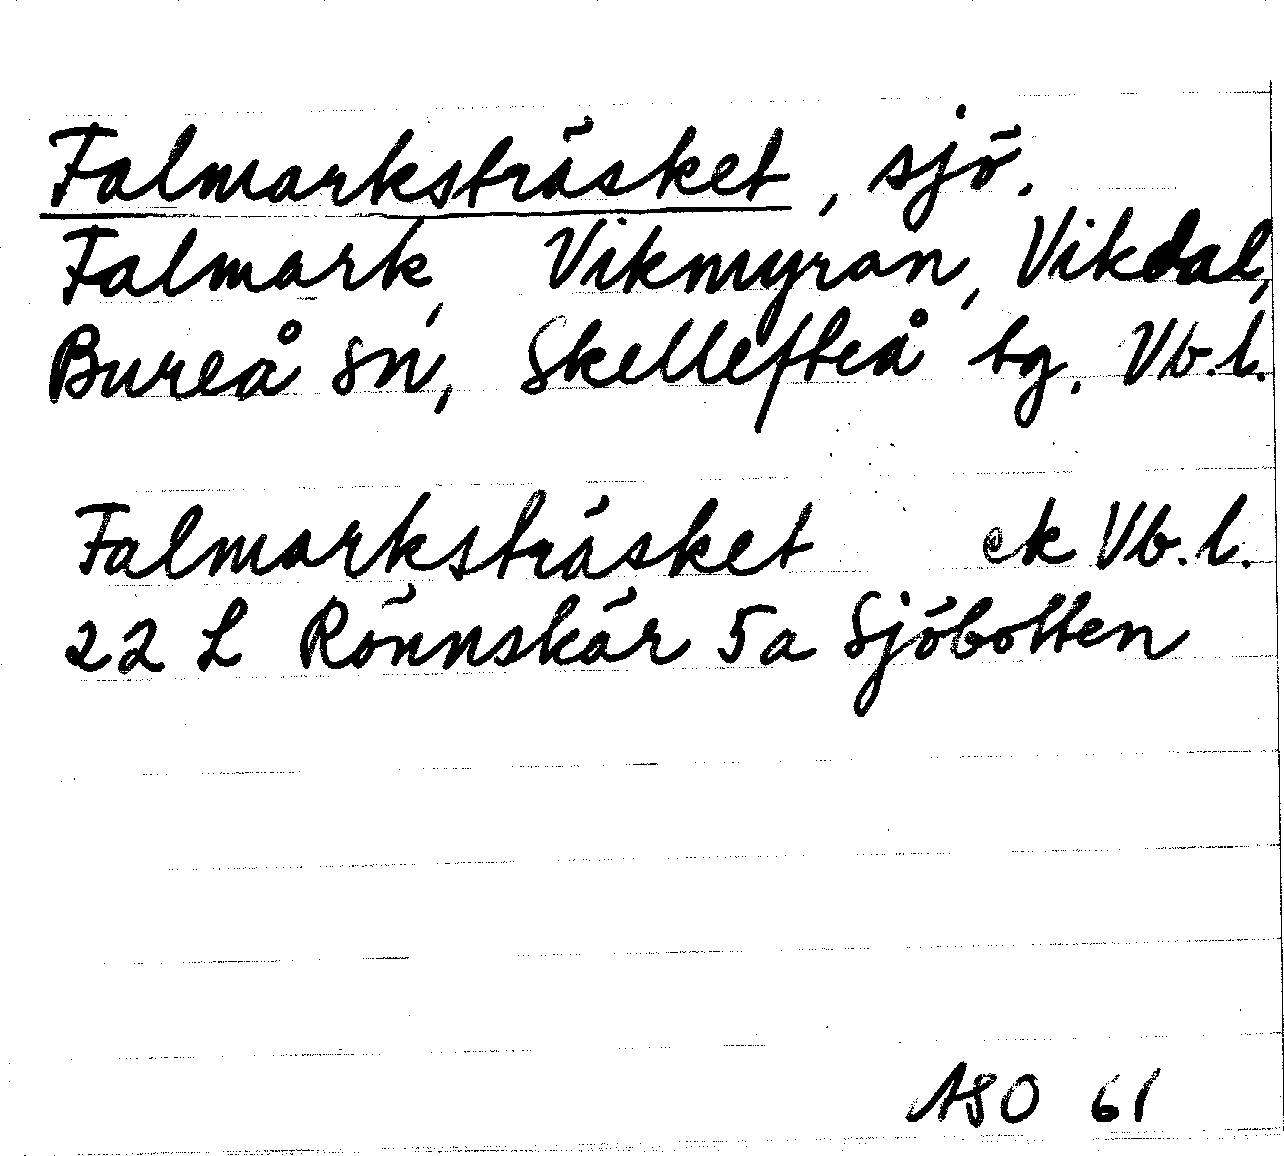 Falmarksträsket, sjö.
Falmark, Vikmyran, Vikdal,
Bureå sn, Skellefteå tg. Vb.l.
Falmarksträsket ek Vb.l.
22 L Rönnskär 5a Sjöbotten
ASO 61